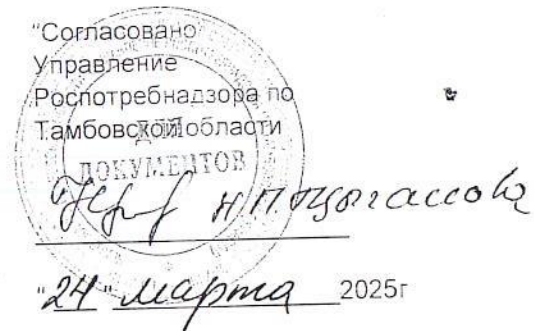 "Согласовано"
Управление
Роспотребнадзора по
Тамбовской области
ДЛЯ
ДОКУМЕНТОВ
Н.П.
"24" марта 2025г